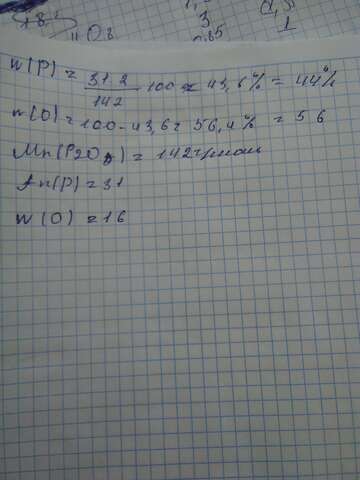 3
0,85
1
w(P) = 31·2 / 142 · 100 = 43,6% = 44%
w(O) = 100 - 43,6 = 56,4% = 56
Mr(P2O5) = 142 г/моль
Ar(P) = 31
w(O) = 16